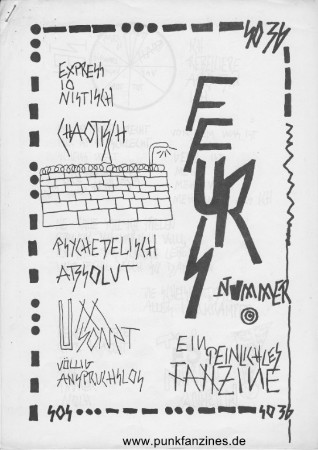 SO 36
EXPRESS
IO
NISTISCH
CHAOTISCH
PSYCHEDELISCH
ABSOLUT
UM
SONST
VÖLLIG
ANSPRUCHSLOS
NUMMER
EIN
PEINLICHES
FANZINE
SOS
SO 36
www.punkfanzines.de